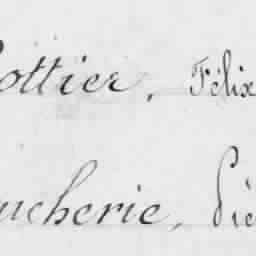 ottier, Félix
ucherie, Pie